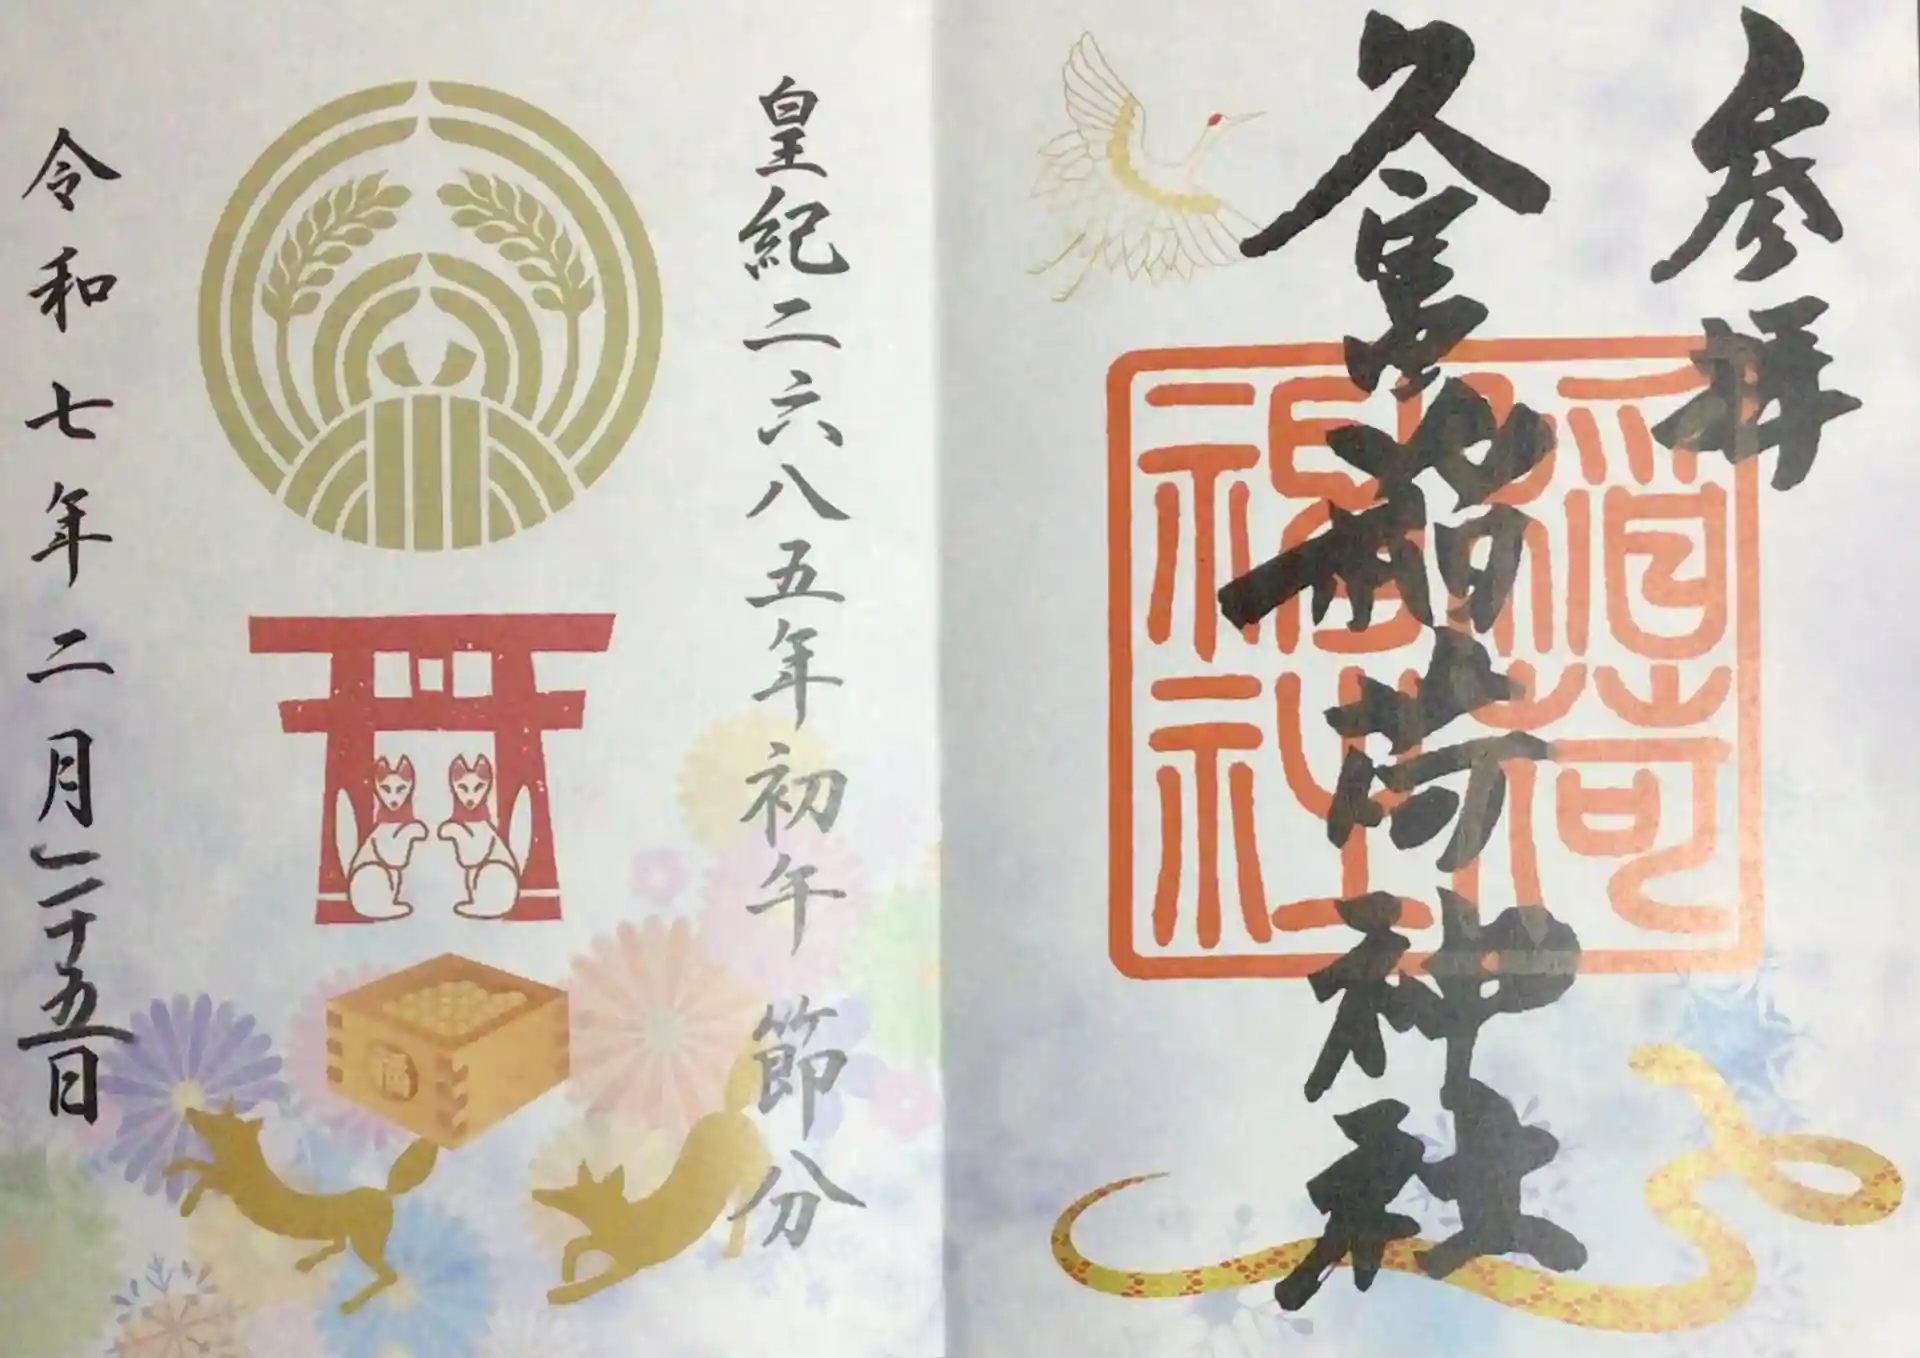 参拝
久富稲荷神社
稲荷
神社
皇紀二六八五年初午 節分
福
令和七年二月二十五日